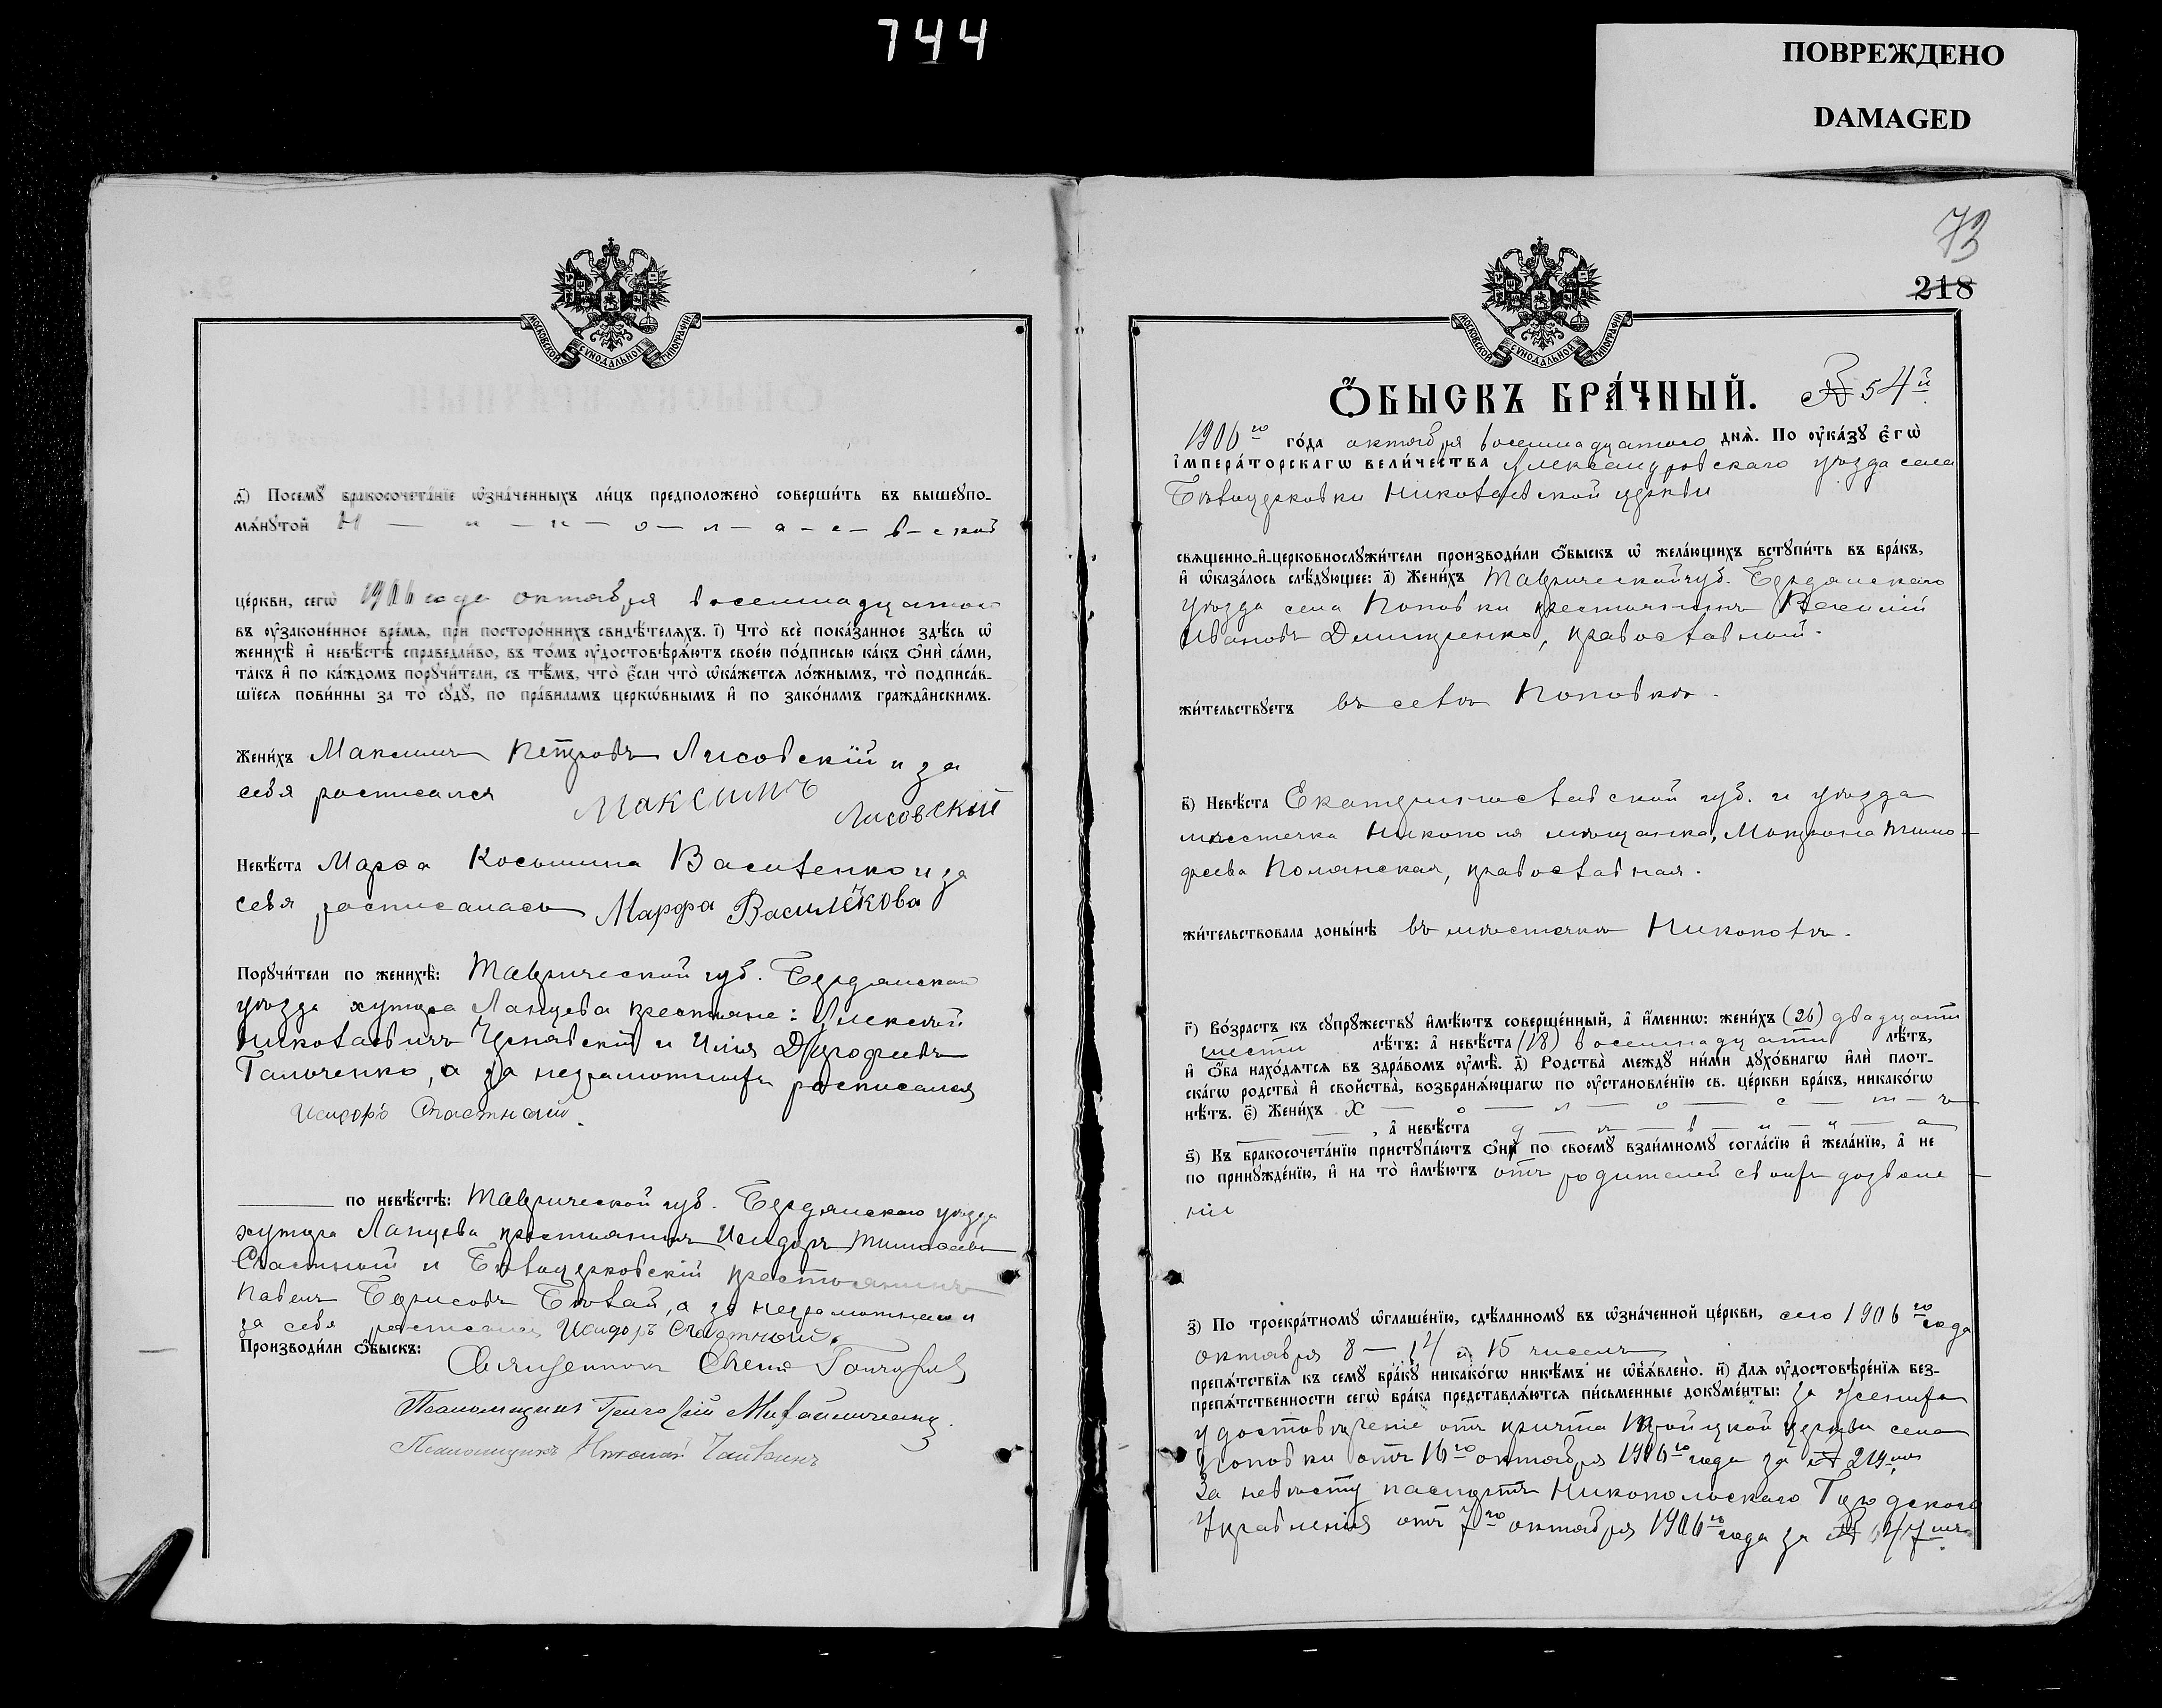 744
ПОВРЕЖДЕНО
DAMAGED
МОСКОВСКОЙ СУНОДАЛЬНОЙ ТИПОГРАФІИ
ѳ҃) Посемꙋ̀ бракосочета́нїе ѡ҆зна́ченныхъ ли́цъ предположено̀ соверши́ть въ вышеꙋпо-
мѧ́нꙋтой Н — и — к — о — л — а — е — в — ской
це́ркви, сегѡ̀ 1906 года октября восемнадцатого
въ ᲂу҆законе́нное вре́мѧ, при посторо́ннихъ свидѣ́телѧхъ. і҃) Что̀ всѐ пока́занное здѣ́сь ѡ҆
женихѣ̀ и҆ невѣ́стѣ справедли́во, въ то́мъ ᲂу҆достовѣрѧ́ютъ свое́ю по́дписью ка́къ ѻ҆нѝ са́ми,
та́къ и҆ по ка́ждомъ порꙋчи́тели, съ тѣ́мъ, что̀ є҆́сли что̀ ѡ҆ка́жетсѧ ло́жнымъ, то̀ подписа́в-
шїесѧ пови́нны за то̀ сꙋдꙋ̀, по пра́виламъ церкѡ́внымъ и҆ по зако́намъ гражда̂нскимъ.
Жени́хъ Максимъ Петровъ Лисовскій и за
себя росписался Максимъ
Лисовскый
Невѣ́ста Марѳа Косьмина Василенко и за
себя росписалась Марфа Василекова
Порꙋчи́тели по женихѣ̀: Таврической губ. Бердянскаго
уѣзда хутора Ланцева крестьяне: Алексѣй
Николаевичъ и Илія Дорофѣевъ
Гальченко, а за неграмотныхъ росписался
Исидоръ Счастный.
по невѣ́стѣ: Таврической губ. Бердянскаго уѣзда
хутора Ланцева крестьянинъ Исидоръ Тимоѳеевъ
Счастный и Бѣлоцерковскій крестьянинъ
Павелъ Борисовъ Бѣлай, а за неграмотнаго и
за себя росписался Исидоръ Счастный.
Производи́ли ѻ҆́быскъ:
Священникъ Гончаровъ
Псаломщикъ Григорій Михайличенко.
Псаломщикъ Николай
73
218
МОСКОВСКОЙ СУНОДАЛЬНОЙ ТИПОГРАФІИ
Ѻ҆́БЫСКЪ БРА́ЧНЫЙ. № 54й
1906го го́да октября восемнадцатого днѧ̀. По ᲂу҆ка́зꙋ є҆гѡ̀
і҆мпера́торскагѡ вели́чества Александровскаго уѣзда села
Бѣлоцерковки Николаевской церкви
свѧще́нно-и҆-церковнослꙋжи́тели производи́ли ѻ҆́быскъ ѡ҆ жела́ющихъ встꙋпи́ть въ бра́къ,
и҆ ѡ҆каза́лось слѣ́дꙋющее: а҃) Жени́хъ Таврической губ. Бердянскаго
уѣзда села Поповки крестьянинъ Василій
Ивановъ Дмитренко, православный.
жи́тельствꙋетъ въ селѣ Поповкѣ.
в҃) Невѣ́ста Екатеринославской губ. и уѣзда
мѣстечка Никополя мѣщанка, Матрона Тимо-
феева Полянская, православная.
жи́тельствовала доны́нѣ въ мѣстечкѣ Никополѣ.
г҃) Во́зрастъ къ сꙋпрꙋ́жествꙋ и҆мѣ́ютъ соверше́нный, а҆ и҆́меннѡ: жени́хъ (26) двадцати
шести лѣ́тъ: а҆ невѣ́ста (18) восемнадцати лѣ́тъ,
и҆ ѻ҆́ба нахо́дѧтсѧ въ здра́вомъ ᲂу҆мѣ̀. д҃) Родства̀ междꙋ̀ ни́ми дꙋхо́внагѡ и҆лѝ плот-
ска́гѡ родства̀ и҆ свойства̀, возбранѧ́ющагѡ по ᲂу҆становле́нїю св. це́ркви бра́къ, никако́гѡ
нѣ́тъ. є҃) Жени́хъ х — о — л — о — с — т — ъ
, а҆ невѣ́ста д — ѣ — в — и — ц — а
ѕ҃) Къ бракосочета́нїю пристꙋпа́ютъ ѻ҆нѝ по своемꙋ̀ взаи́мномꙋ согла́сїю и҆ жела́нїю, а҆ не
по принꙋжде́нїю, и҆ на то̀ и҆мѣ́ютъ отъ родителей своихъ дозволе-
ніе
з҃) По троекра́тномꙋ ѡ҆глаше́нїю, сдѣ́ланномꙋ въ ѡ҆зна́ченной це́ркви, сего 1906го года
октября 8 — 14 и 15 числъ
препѧ́тствїѧ къ семꙋ̀ бра́кꙋ никако́гѡ никѣ́мъ не ѡ҆б̾ѧ́влено̀. и҃) Длѧ̀ ᲂу҆достовѣре́нїѧ без-
препѧ́тственности сегѡ̀ бра́ка представлѧ́ютсѧ пи́сьменные докꙋме́нты: за жениха
удостовѣреніе отъ причта Троицкой церкви села
Поповки отъ 16го октября 1906го года за № 219мъ
За невѣсту паспортъ Никопольскаго Городского
Управленія отъ 7го октября 1906го года за № 647мъ.